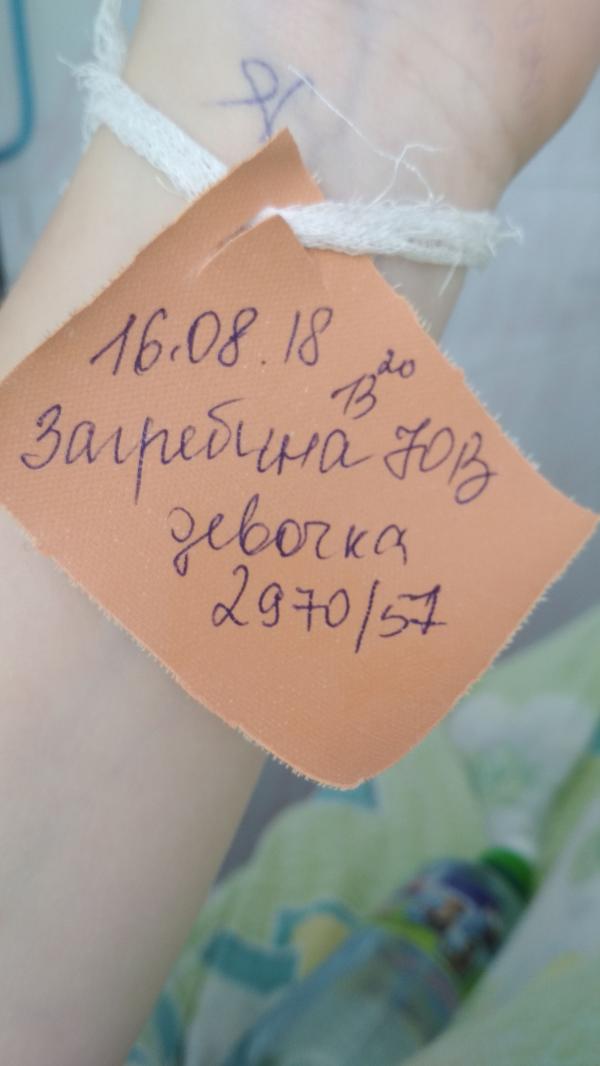 16.08.18
13²⁰
Загребина ЮВ
девочка
2970/57